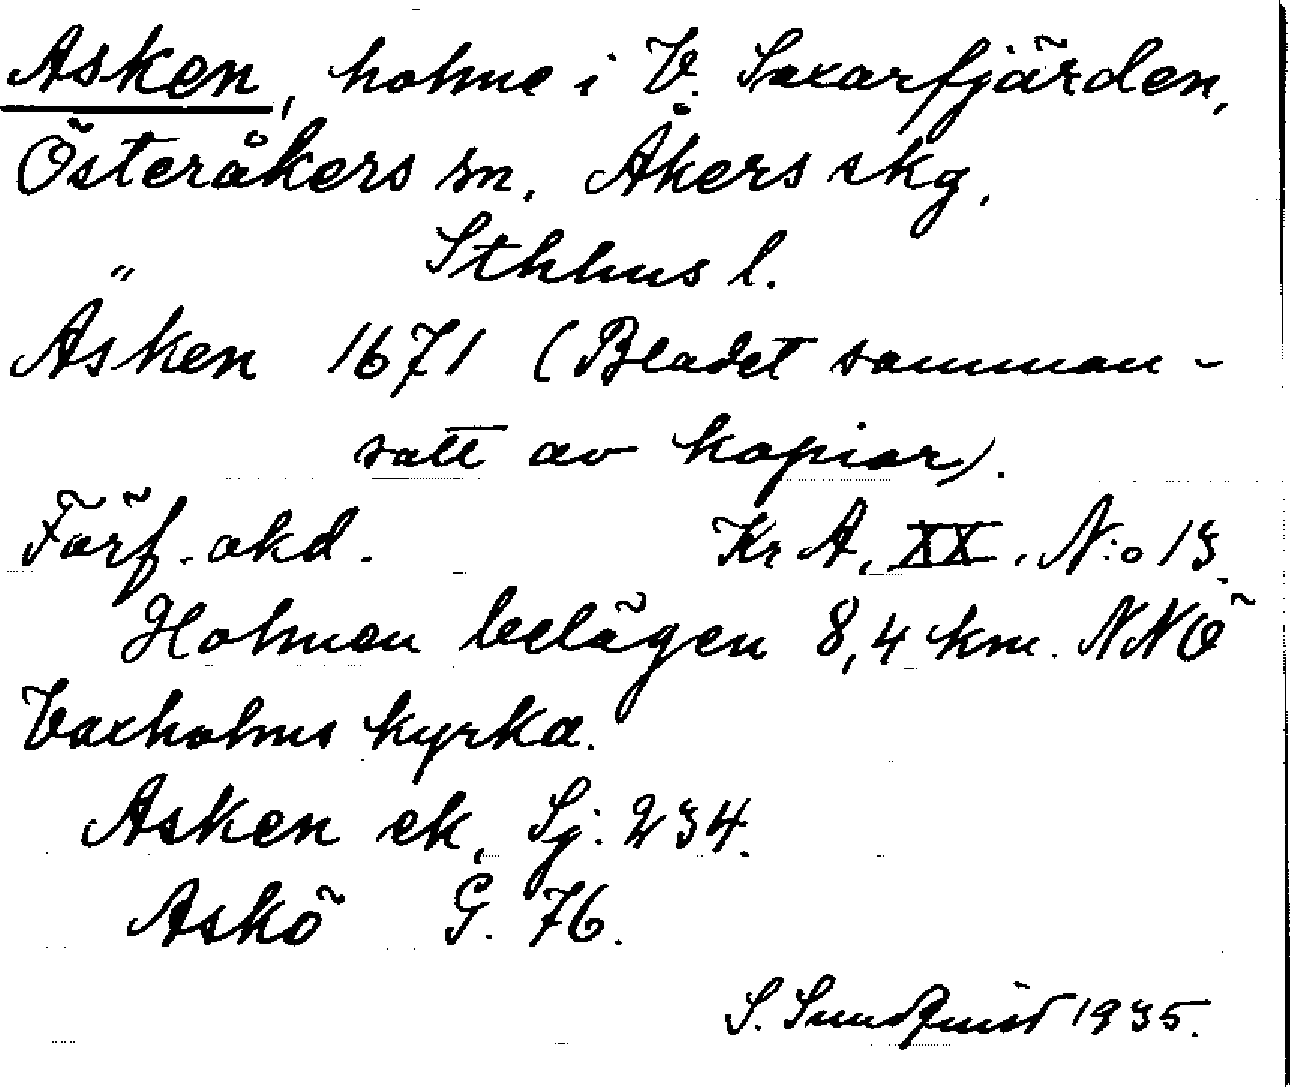 Asken, holme i V. Saxarfjärden,
Österåkers sn. Åkers skg.
Sthlms l.
"
Asken 1671 (Bladet samman-
satt av kopior).
Förf. okd. Kr A, XX. N:o 13.
Holmen belägen 8,4 km. NNÖ
Vaxholms kyrka.
Asken ek. Sj. 234.
Askö G. 76.
S. Sundquist 1935.